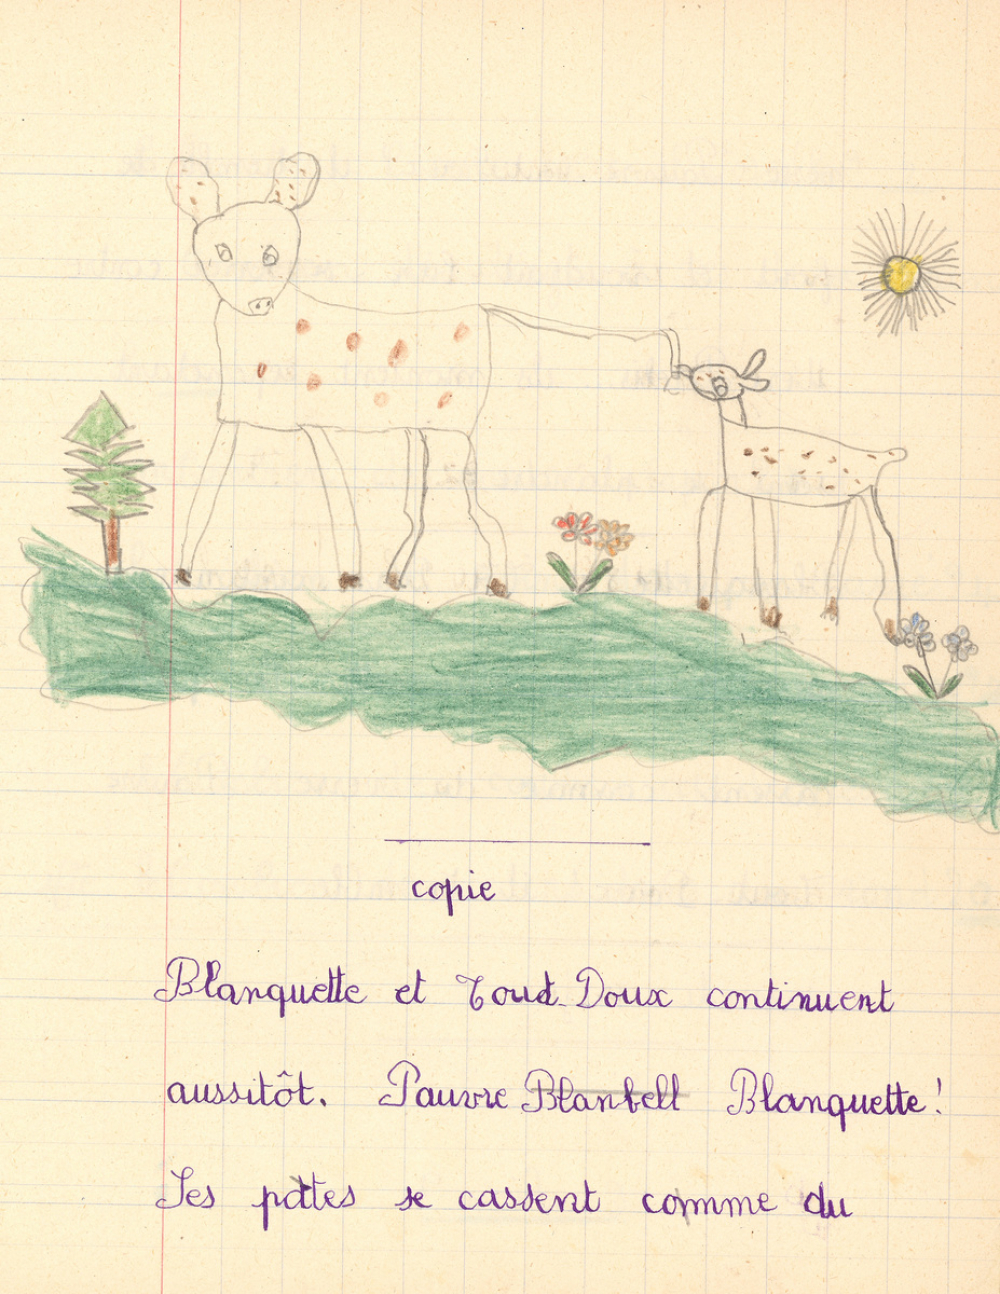 copie
Blanquette et Tout-Doux continuent
aussitôt. Pauvre Blanbell Blanquette!
Ses pattes se cassent comme du